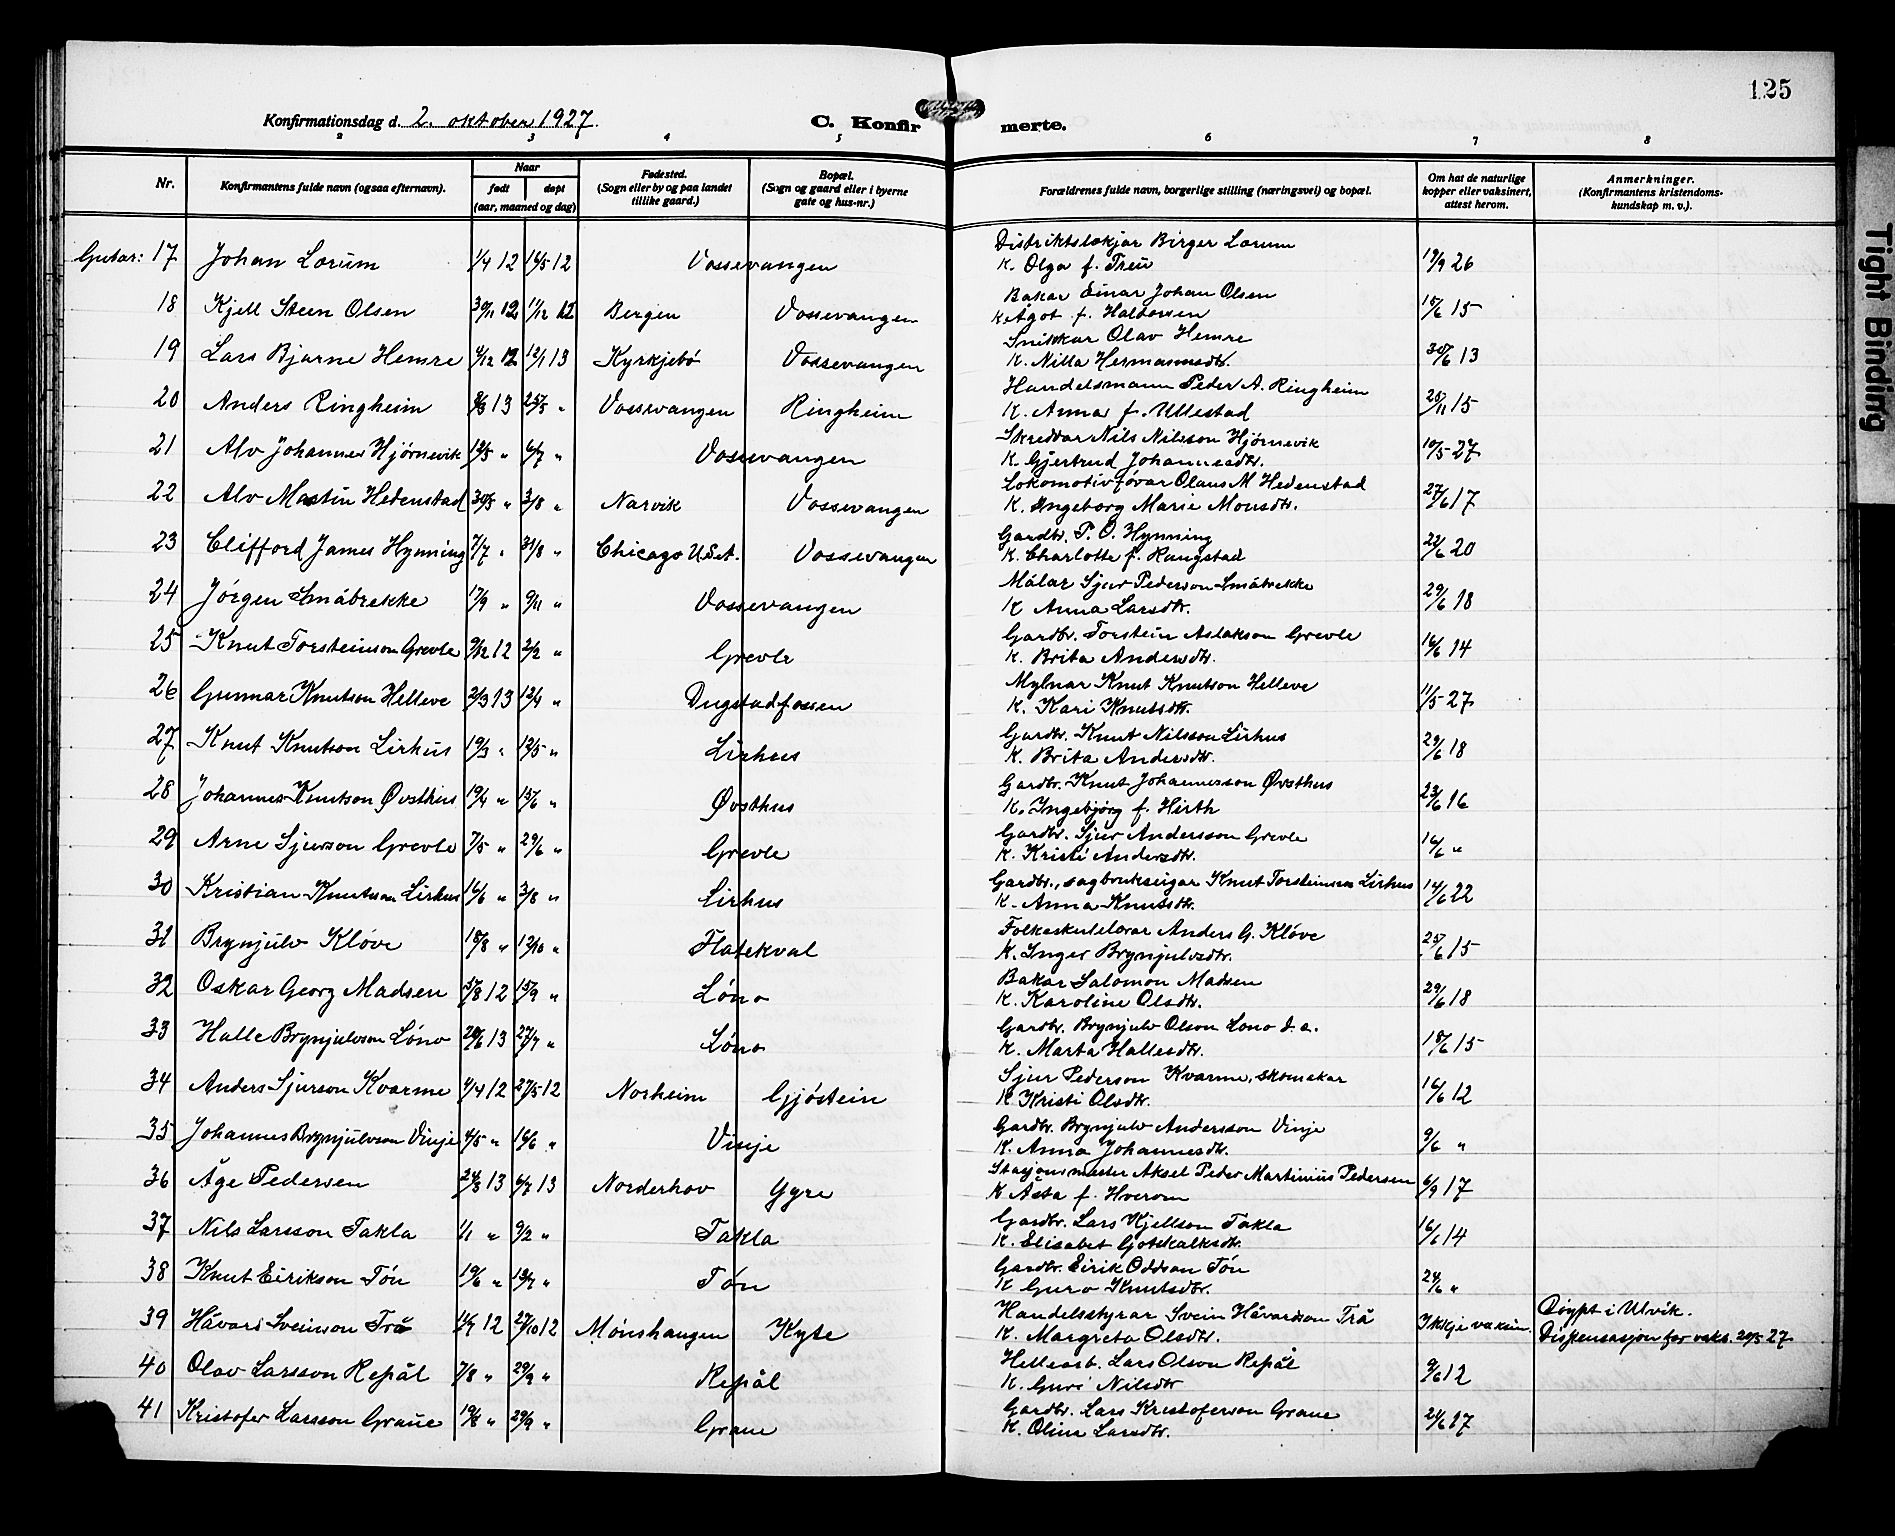 125
Konfirmationsdag d. 2. oktober 1927.
C. Konfirmerte.
2 3 4 5 6 7 8
Nr.
Konfirmantens fulde navn (ogsaa efternavn).
Naar
født
døpt
(aar, maaned og dag)
Fødested.
(Sogn eller by og paa landet
tillike gaard.)
Bopæl.
(Sogn og gaard eller i byerne
gate og hus-nr.)
Forældrenes fulde navn, borgerlige stilling (næringsvei) og bopæl.
Om hat de naturlige
kopper eller vaksinert,
attest herom.
Anmerkninger.
(Konfirmantens kristendoms-
kundskap m. v.).
Gutar: 17 Johan Lorum 1/4 12 16/5 12 Vossevangen Distriktslækjar Birger Lorum
K. Olga f. Treu 19/9 26
18 Kjell Steen Olsen 30/11 12 11/12 12 Bergen Vossevangen Bakar Einar Johan Olsen
K. Ågot f. Haldorsen 15/6 15
19 Lars Bjarne Hemre 4/12 12 12/1 13 Kyrkjebø Vossevangen Snikkar Olav Hemre
K. Nilla Hermannsdtr. 30/6 13
20 Anders Ringheim 9/3 13 25/5 " Vossevangen Ringheim Handelsmann Peder A. Ringheim
K. Anna f. Ullestad 25/11 15
21 Alv Johannes Hjørnevik 12/5 " 6/7 " Vossevangen Skreddar Nils Nilsson Hjørnevik
K. Gjertrud Johannesdtr. 10/5 27
22 Alv Martin Hedenstad 30/5 " 3/8 " Narvik Vossevangen Lokomotivførar Olaus M Hedenstad
K. Ingeborg Marie Monsdtr. 27/6 17
23 Clifford James Hynning 7/7 " 31/8 " Chicago U.St. Vossevangen Gardbr. P. O. Hynning
K. Charlotte f. Rangstad 22/6 20
24 Jørgen Småbrekke 17/9 " 9/11 " Vossevangen Målar Sjur Pederson Småbrekke
K Anna Larsdtr. 29/6 18
25 Knut Torsteinson Grevle 9/12 12 2/2 " Grevle Gardbr. Torstein Aslakson Grevle
K. Brita Andersdtr. 16/6 14
26 Gunnar Knutson Helleve 2/3 13 13/4 " Dugstadfossen Mylnar Knut Knutson Helleve
K. Kari Knutsdtr. 11/5 27
27 Knut Knutson Lirhus 19/3 " 12/5 " Lirhus Gardbr. Knut Nilsson Lirhus
K. Brita Andersdtr. 29/6 18
28 Johannes Knutson Øvsthus 19/4 " 15/6 " Øvsthus Gardbr. Knut Johannesson Øvsthus
K. Ingebjørg f. Hirth 23/6 16
29 Arne Sjurson Grevle 7/5 " 29/6 " Grevle Gardbr. Sjur Andersson Grevle
K. Kristi Andersdtr. 16/6 "
30 Kristian Knutson Lirhus 16/6 " 3/8 " Lirhus Gardbr., sagbrukseigar Knut Torsteinson Lirhus
K. Anna Knutsdtr. 14/6 22
31 Brynjulv Kløve 18/8 " 12/10 " Flatekval Folkeskulelærar Anders G. Kløve
K. Inger Brynjulvsdtr. 25/6 15
32 Oskar Georg Madsen 5/8 12 15/9 " Løno Bakar Salomon Madsen
K. Karoline Olsdtr. 29/6 18
33 Halle Brynjulvson Løno 20/6 13 27/7 " Løno Gardbr. Brynjulv Olson Løno d. a.
K. Marta Hallesdtr. 18/6 15
34 Anders Sjurson Kvarme 4/4 12 27/5 12 Norheim Gjøstein Sjur Pederson Kvarme, skomakar
K. Kristi Olsdtr. 16/6 12
35 Johannes Brynjulvson Vinje 4/5 " 16/6 " Vinje Gardbr. Brynjulv Andersson Vinje
K. Anna Johannesdtr. 9/6 "
36 Åge Pedersen 24/3 13 6/7 13 Norderhov Gyre Stasjonsmester Aksel Peder Martinius Pedersen
K Åsta f. Hverom 6/9 17
37 Nils Larsson Takla 1/1 " 9/2 " Takla Gardbr. Lars Kjellson Takla
K. Elisabet Gotskalksdtr. 16/6 14
38 Knut Eirikson Tøn 19/6 " 13/7 " Tøn Gardbr. Eirik Oddson Tøn
K Guro Knutsdtr. 24/6 "
39 Håvard Sveinson Trå 12 27/10 12 Mønshaugen Kyte Handelsstyrar Svein Håvardson Trå
K. Margreta Olsdtr. Ikkje vaksin. Døypt i Ulvik.
Dispensasjon for vaks. 20/5 27.
40 Olav Larsson Repål 7/8 " 29/9 " Repål Hellearb. Lars Olson Repål
K. Guri Nilsdtr 9/6 12
41 Kristofer Larsson Graue 19/8 " 29/9 " Graue Gardbr. Lars Kristoferson Graue
K. Olina Larsdtr. 21/6 17
Tight Binding